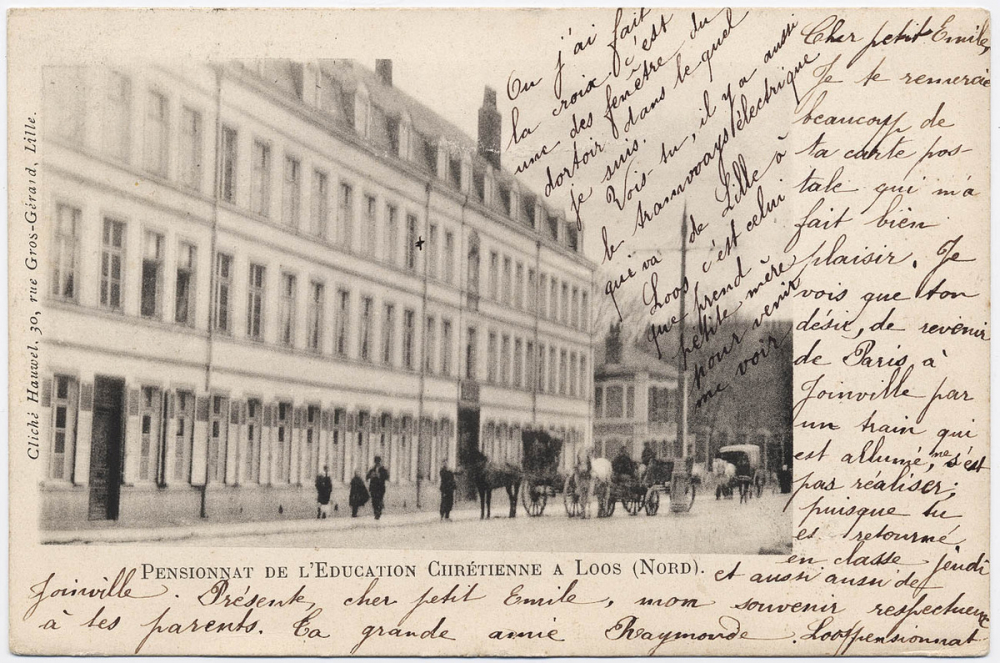 Cliché Hauwel, 30, rue Gros-Gérard, Lille.
Ou j'ai fait
la croix c'est
une des fenêtre du
dortoir dans le quel
je suis.
Vois-tu, il y a aussi
le tramvoays électrique
qui va de Lille à
Loos c'est celui
que prend
petite mère
pour venir
me voir
Cher petit Emile,
Je te remercie
beaucoup de
ta carte pos-
tale qui m'a
fait bien
plaisir. Je
vois que ton
désir, de revenir
de Paris à
Joinville par
un train qui
est allumé, ne s'est
pas réaliser;
puisque tu
es retourné
en classe jeudi
et aussi aussi de
PENSIONNAT DE L'EDUCATION CHRÉTIENNE A LOOS (NORD).
Joinville. Présente, cher petit Emile, mon souvenir respectueux
à tes parents. Ta grande amie Raymonde. Loos pensionnat